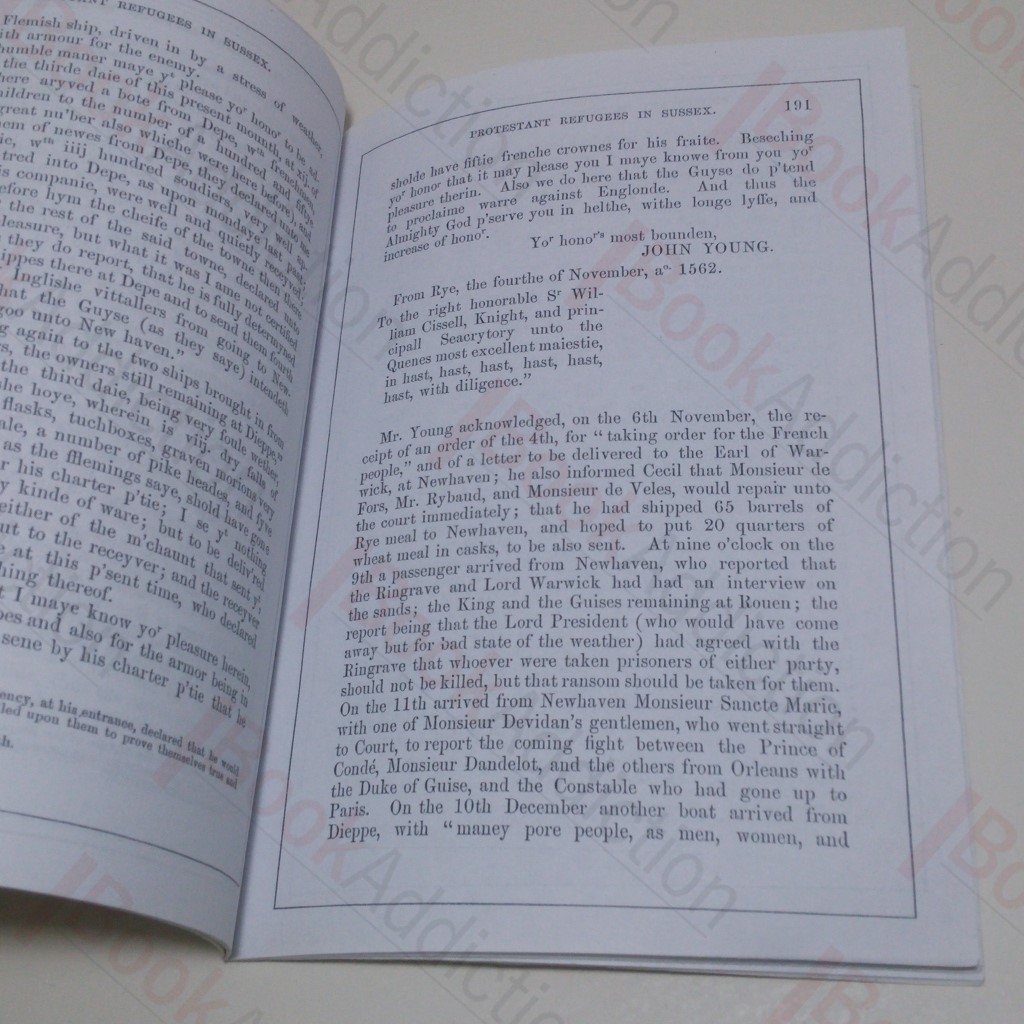 TANT REFUGEES IN SUSSEX.
Flemish ship, driven in by a stress of weather,
ith armour for the enemy.
humble maner maye yt please yor honor to be ad-
the thirde daie of this present mounth, at xij. of
here aryved a bote from Depe, wth frenchmen
hildren to the number of a hundred and fiftie
great nu'ber also whiche were here before), and
em of newes from Depe, they declared unto us
ie, wth iiij hundred soudiers, very well ap-
tred into Depe, as upon mondaye last past;
is companie, were well and quietly receyved;
efore hym the cheife of the towne then there
the rest of the said towne, declared unto
leasure, but what it was I ame not certified
they do report, that he is fully determyned
ippes there at Depe and to send them fourth
Inglishe vittallers from going to New-
hat the Guyse (as they saye) intendeth
goo unto New haven."
g again to the two ships brought in from
rs, the owners still remaining at Dieppe,"
the third daie, being very foule wether,
he hoye, wherein is viij. dry fatts of
flasks, tuchboxes, graven morions very
ale, a number of pike heades, and fyve
as the fflemings saye, shold have gone
r his charter p'tie; I se yt nothing
y kinde of ware; but to be deliv'red
either of the m'chaunt that sent yt,
ut to the receyver; and the receyver
e at this p'sent time, who declared
hing thereof.
t I maye know yor pleasure herein,
pes and also for the armor being in
sene by his charter p'tie that he
ency, at his entrance, declared that he would
led upon them to prove themselves true and
h.
PROTESTANT REFUGEES IN SUSSEX. 191
sholde have fiftie frenche crownes for his fraite. Beseching
yor honor that it may please you I maye knowe from you yor
pleasure therin. Also we do here that the Guyse do p'tend
to proclaime warre against Englonde. And thus the
Almighty God p'serve you in helthe, withe longe lyffe, and
increase of honor.
Yor honors most bounden,
JOHN YOUNG.
From Rye, the fourthe of November, ao. 1562.
To the right honorable Sr Wil-
liam Cissell, Knight, and prin-
cipall Seacrytory unto the
Quenes most excellent maiestie,
in hast, hast, hast, hast, hast,
hast, with diligence."
Mr. Young acknowledged, on the 6th November, the re-
ceipt of an order of the 4th, for "taking order for the French
people," and of a letter to be delivered to the Earl of War-
wick, at Newhaven; he also informed Cecil that Monsieur de
Fors, Mr. Rybaud, and Monsieur de Veles, would repair unto
the court immediately; that he had shipped 65 barrels of
Rye meal to Newhaven, and hoped to put 20 quarters of
wheat meal in casks, to be also sent. At nine o'clock on the
9th a passenger arrived from Newhaven, who reported that
the Ringrave and Lord Warwick had had an interview on
the sands; the King and the Guises remaining at Rouen; the
report being that the Lord President (who would have come
away but for bad state of the weather) had agreed with the
Ringrave that whoever were taken prisoners of either party,
should not be killed, but that ransom should be taken for them.
On the 11th arrived from Newhaven Monsieur Sancte Marie,
with one of Monsieur Devidan's gentlemen, who went straight
to Court, to report the coming fight between the Prince of
Condé, Monsieur Dandelot, and the others from Orleans with
the Duke of Guise, and the Constable who had gone up to
Paris. On the 10th December another boat arrived from
Dieppe, with "maney pore people, as men, women, and